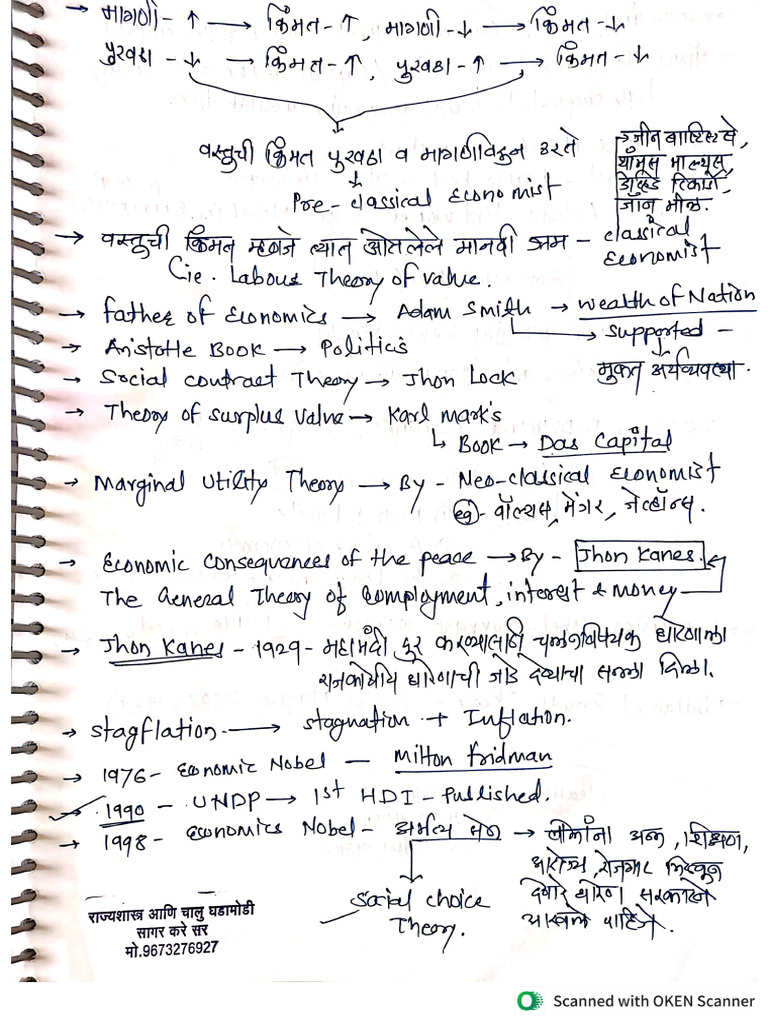 → मागणी - ↑ → किंमत - ↑, मागणी - ↓ → किंमत - ↓
पुरवठा - ↓ → किंमत - ↑, पुरवठा - ↑ → किंमत - ↓
वस्तुची किंमत पुरवठा व मागणीवरून ठरते
↓
Pre-classical Economist
→ वस्तुची किंमत म्हणजे त्यात ओतलेले मानवी श्रम - classical Economist
जीन बाप्टिस्ट से,
थॉमस माल्थस,
डेव्हिड रिकार्डो,
जॉन मील.
(ie. Labour Theory of value.
→ father of Economics → Adam Smith → Wealth of Nation
→ supported -
मुक्त अर्थव्यवस्था.
→ Aristotle Book → Politics
→ Social contract Theory → Jhon Lock
→ Theory of surplus value → Karl mark's
↳ Book → Das Capital
→ Marginal Utility Theory → By - Neo-classical Economist
eg - वॉल्रास, मेंगर, जेव्हॉन्स.
→ Economic Consequences of the peace → By - Jhon Kanes.
The General Theory of Employment, interest & money
→ Jhon Kanes - 1929 - महामंदी दुर करण्यासाठी चलनविषयक धोरणाला
राजकोषीय धोरणाची जोड देण्याचा सल्ला दिला.
→ stagflation → stagnation + Inflation.
→ 1976 - Economic Nobel - Milton Fridman
→ 1990 - UNDP → 1st HDI - Published.
→ 1998 - Economics Nobel - अमर्त्य सेन → लोकांना अन्न, शिक्षण,
आरोग्य, रोजगार मिळवून
देणारे धोरण सरकारने
आखले पाहिजे.
Social choice
Theory.
राज्यशास्त्र आणि चालु घडामोडी
सागर करे सर
मो.9673276927
Scanned with OKEN Scanner